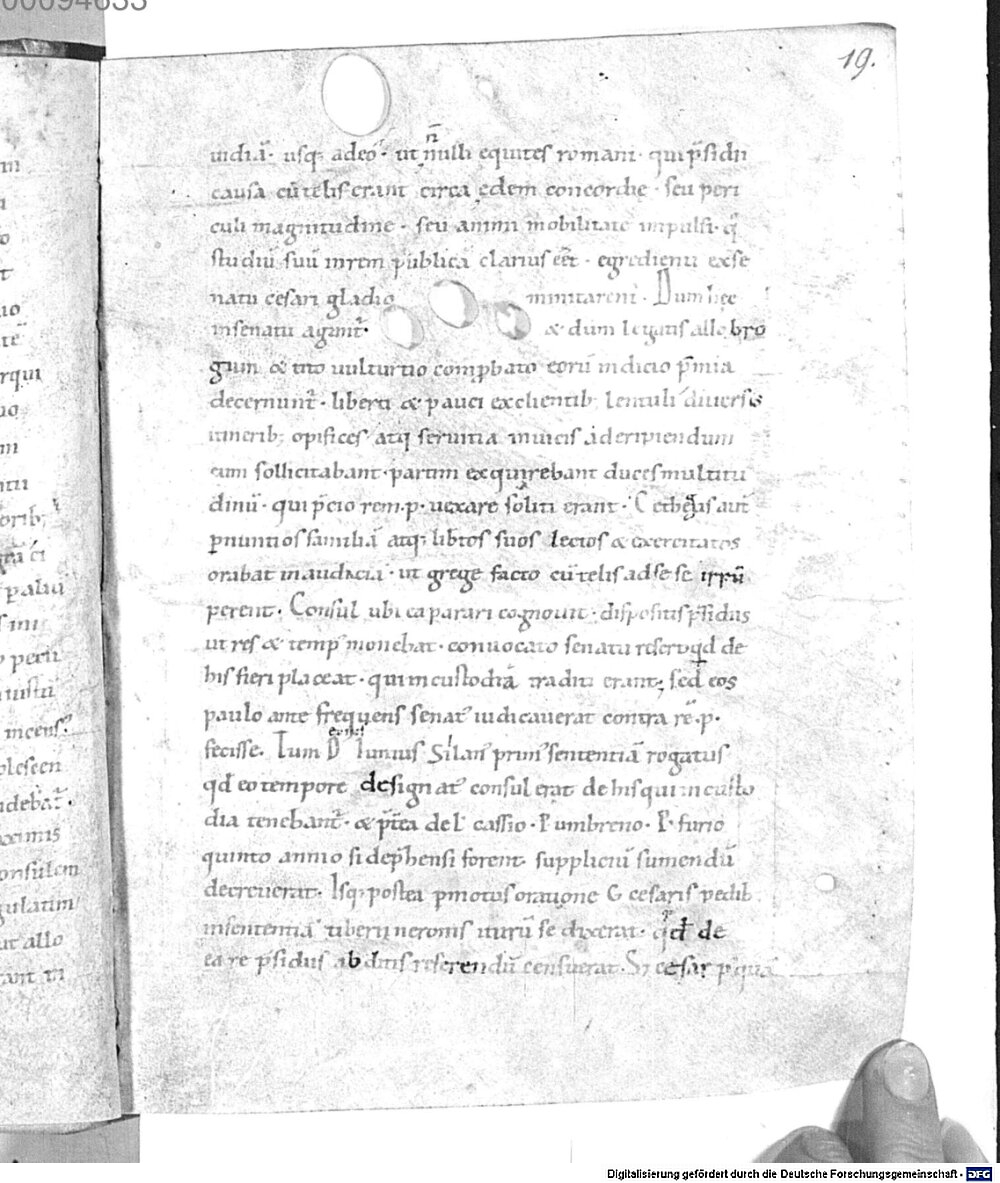 00094633
19.
uidiā· usq; adeo· ut ñnulli equites romani· qui p̄sidii
causa cū telis erant circa ędem concordie· seu peri
culi magnitudine· seu animi mobilitate impulsi· q̄
studiū suū inrem publicā clarius eēt· egredienti exse
natu cesari gladio minitarent̄· Dum hec
insenatu agunt̄· & dum legatis allobro
gum & tito uulturtio comp̱bato eorū indicio p̄mia
decernunt̄· liberti & pauci exclientib; lentuli diuersis
itinerib; opifices atq; seruitia inuicis aderipiendum
eum sollicitabant· partim exquirebant duces multitu
dinū· qui p̄cio rem·p· uexare soliti erant· Cethegus aut̄
p̱nuntios familiā atq; libtos suos lectos & exercitatos
orabat inaudaciā· ut grege facto cū telis adse se irrū
perent· Consul ubi ea parari cognouit· dispositis p̄sidiis
ut res & temp' monebat· conuocato senatu refert qd de
his fieri placeat· qui incustodiā traditi erant; sed eos
paulo ante frequens senat' iudicauerat contra rē·p·
fecisse. Tum D' Iunius Silan' prim' sententiā rogatus
qd eo tempore designat' consul erat de his qui incusto
dia tenebant̄· & p̄tea de L' cassio· P umbreno· P· furio
quinto annio si dep̄hensi forent suppliciū sumendū
decreuerat· Isq; postea p̱motus oratione G cesaris pedib;
insententiā tiberii neronis iturū se dixerat· qd de
ea re p̄sidiis abditis referendū censuerat· Sz cesar p̄quā
in
ac
orib;
palā
periī
incens'
olescen
debat̄·
onsulem
gulatim
ut allo
Digitalisierung gefördert durch die Deutsche Forschungsgemeinschaft - DFG